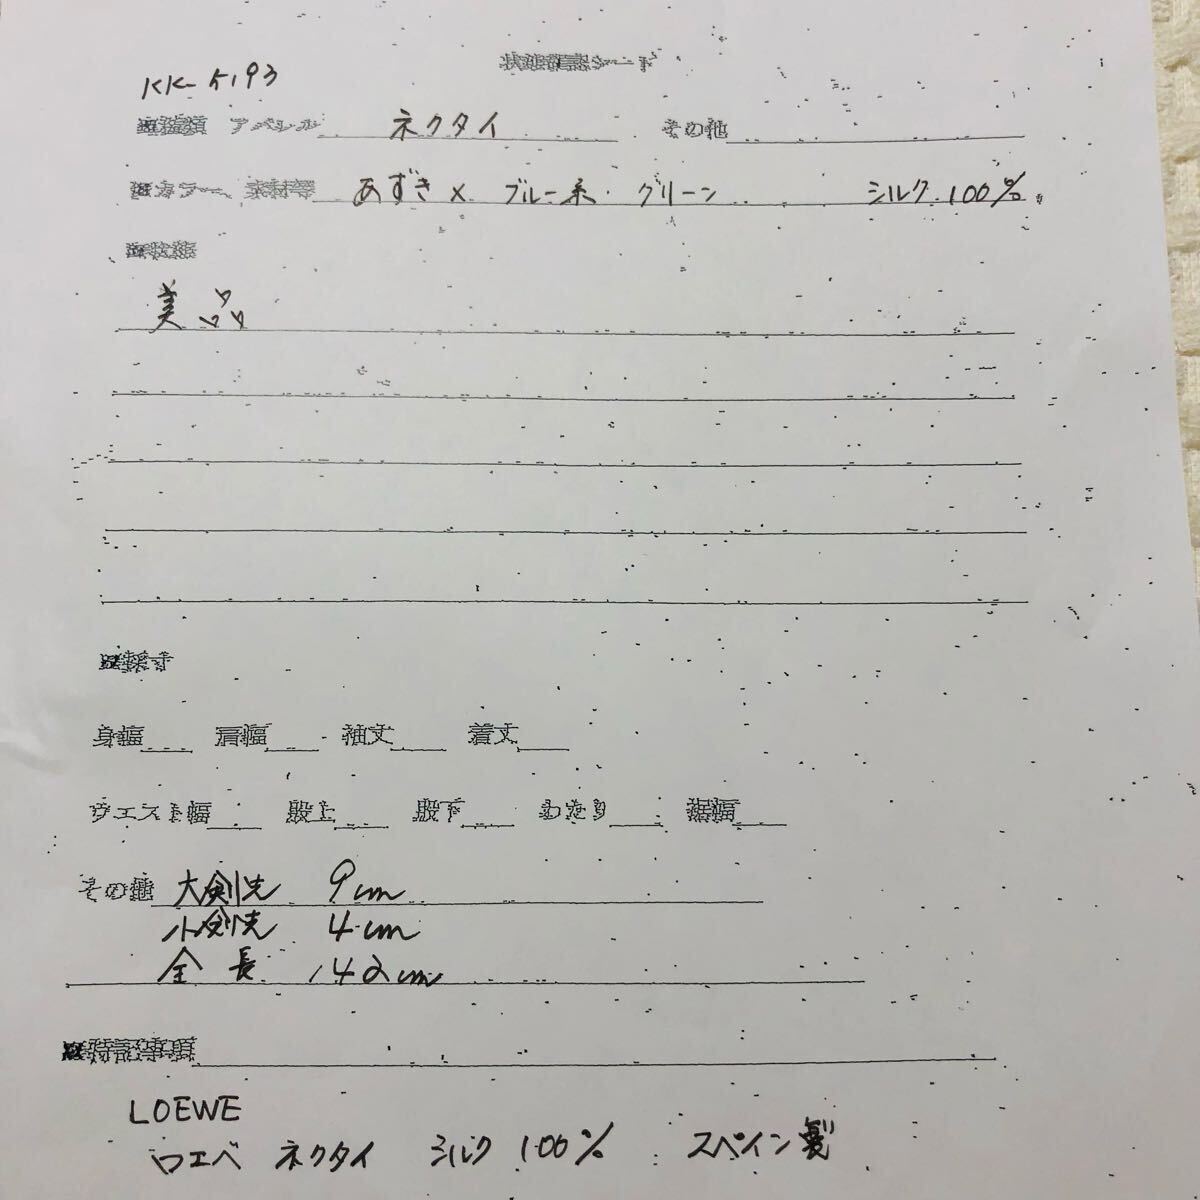 状態確認シート
KK-5193
■種類 アパレル ネクタイ その他
■カラー、素材等 あずき×ブルー系・グリーン シルク100%
■状態
美品
■採寸
身幅 肩幅 袖丈 着丈
ウエスト幅 股上 股下 わたり 裾幅
その他 大剣先 9cm
小剣先 4cm
全長 142cm
■特記事項
LOEWE
ロエベ ネクタイ シルク100% スペイン製